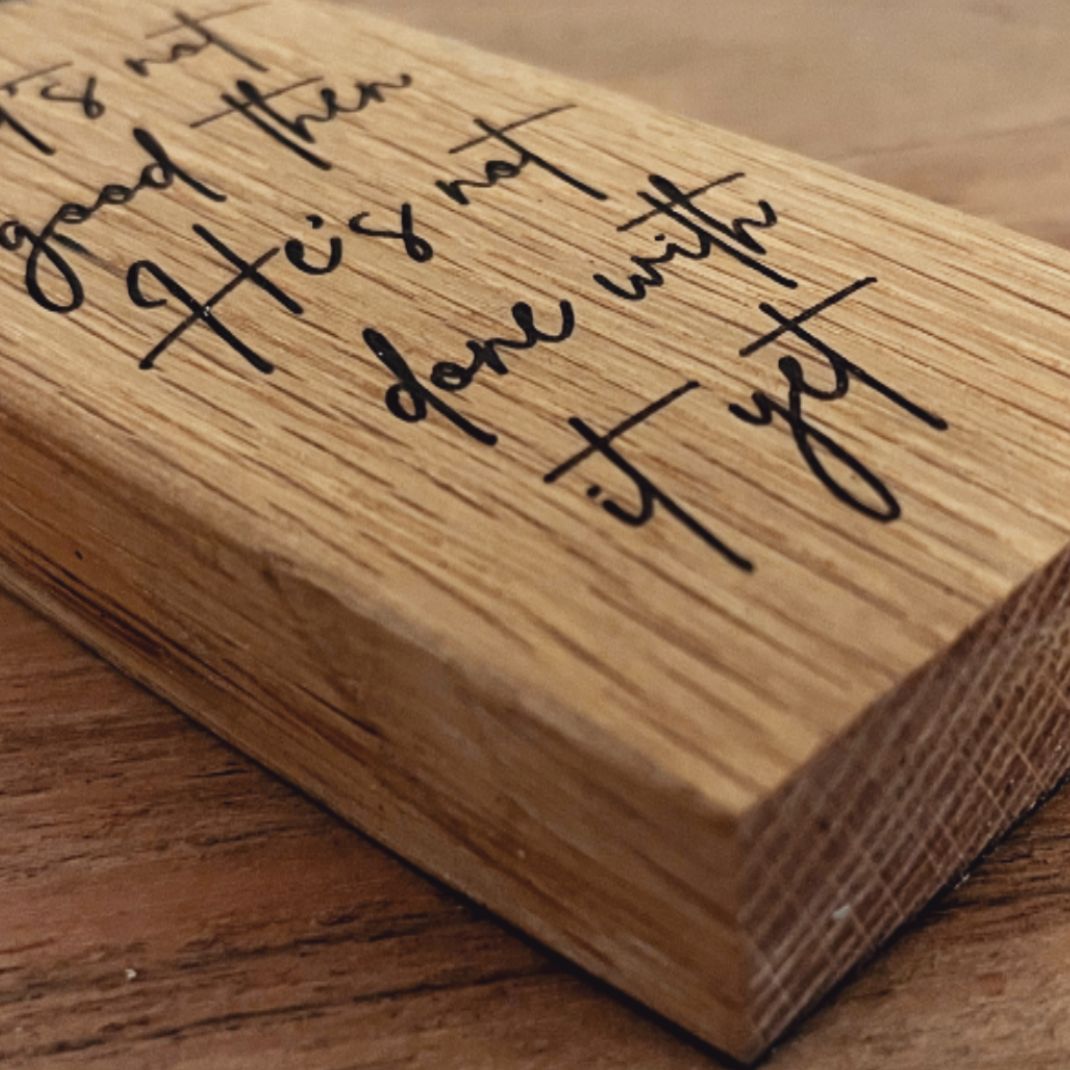 's not
good then
He's not
done with
it yet